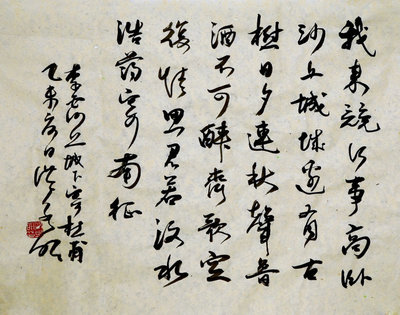 我來競何事高臥
沙丘城城邊有古
樹日夕連秋聲魯
酒不可醉齊歌空
復情思君若汶水
浩蕩寄南征
李白沙丘城下寄杜甫
乙未夏日